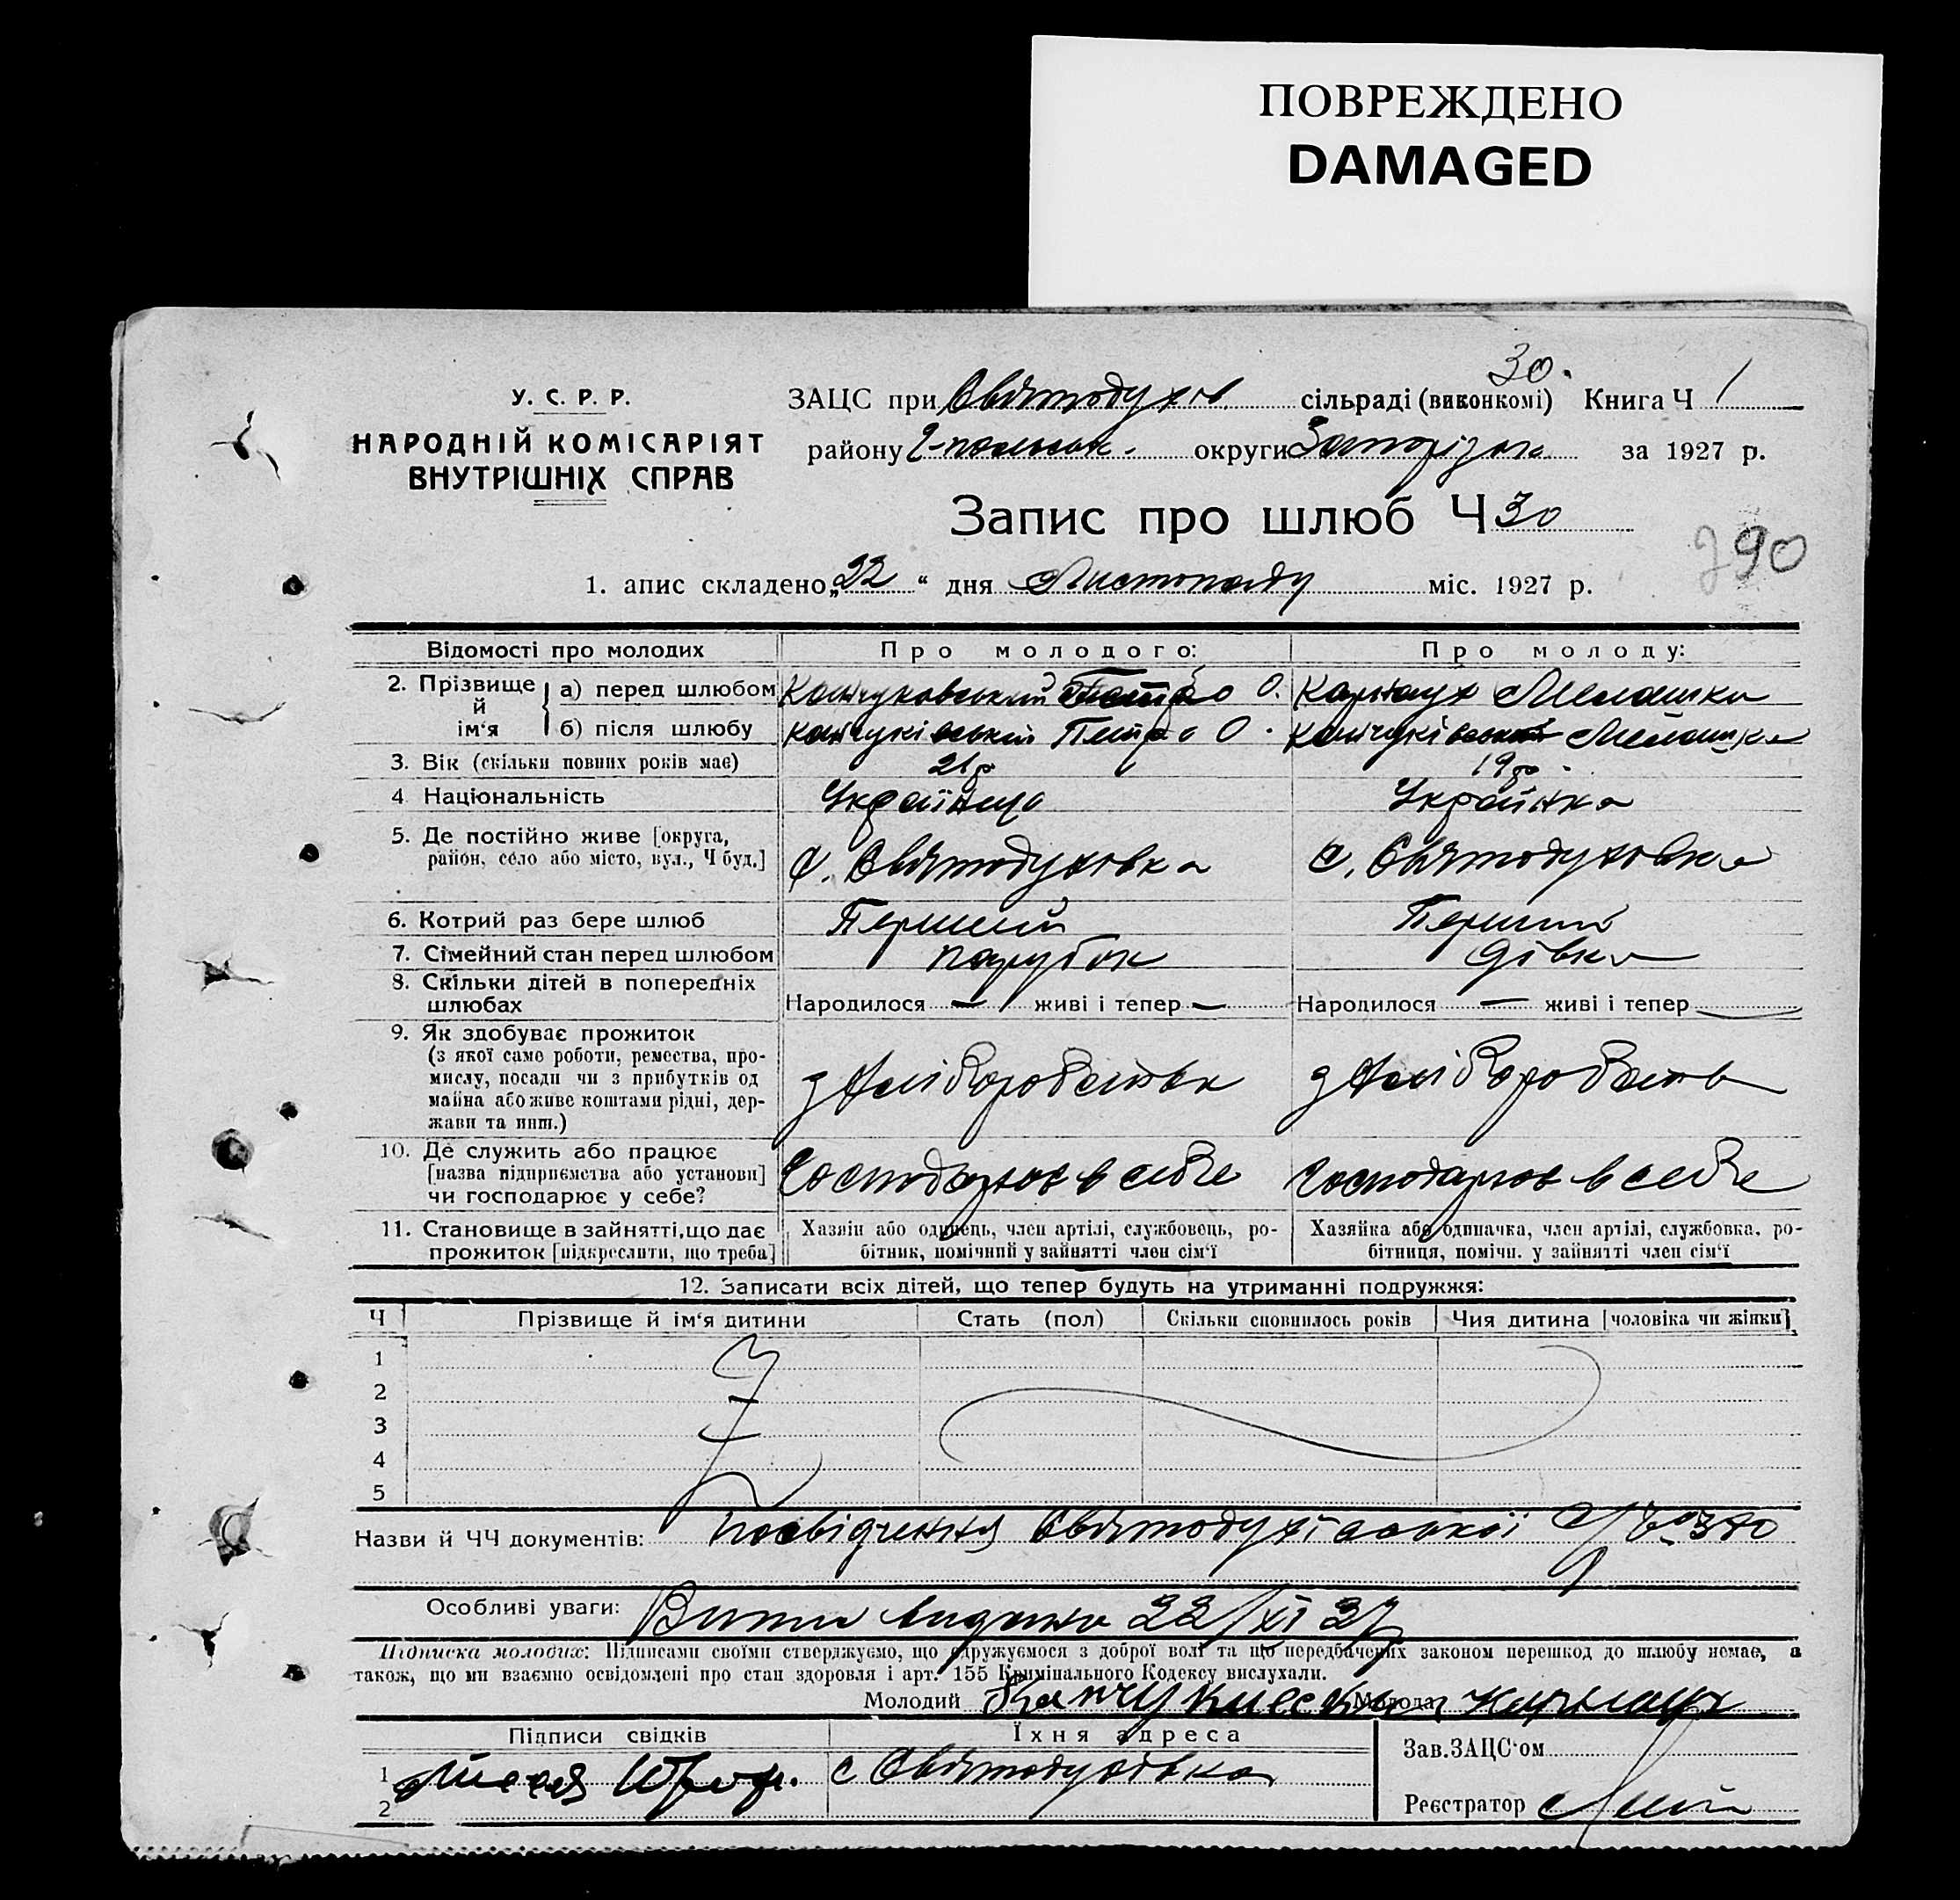 ПОВРЕЖДЕНО
DAMAGED
30.
У. С. Р. Р.
НАРОДНІЙ КОМІСАРІЯТ
ВНУТРІШНІХ СПРАВ
ЗАЦС при Святодухів. сільраді (виконкомі) Книга Ч 1
району округи Запорізьк. за 1927 р.
Запис про шлюб Ч 30
90
1. апис складено „22“ дня Листопаду міс. 1927 р.
Відомості про молодих Про молодого: Про молоду:
2. Прізвище й ім‘я
а) перед шлюбом Петро О. Мелашка
б) після шлюбу Петро О. Мелашка
3. Вік (скільки повних років має) 21 р 19 р.
4 Національність Українець Українка
5. Де постійно живе [округа,
район, село або місто, вул., Ч буд.] с. Святодухівка с. Святодухівка
6. Котрий раз бере шлюб Перший Перший
7. Сімейний стан перед шлюбом парубок дівка
8. Скільки дітей в попередніх
шлюбах Народилося — живі і тепер — Народилося — живі і тепер —
9. Як здобуває прожиток
(з якої саме роботи, ремества, про-
мислу, посади чи з прибутків од
майна або живе коштами рідні, дер-
жави та инш.)
з хліборобства з хліборобства
10. Де служить або працює
[назва підприємства або установи]
чи господарює у себе?
Господарює в себе Господарює в себе
11. Становище в зайнятті, що дає
прожиток [підкреслити, що треба]
Хазяін або одинець, член артілі, службовець, ро-
бітник, помічний у зайнятті член сім‘ї
Хазяйка або одиначка, член артілі, службовка, ро-
бітниця, помічн. у зайнятті член сім‘ї
12. Записати всіх дітей, що тепер будуть на утриманні подружжя:
Ч Прізвище й ім‘я дитини Стать (пол) Скільки сповнилось років Чия дитина [чоловіка чи жінки]
1
2
3
4
5
Назви й ЧЧ документів: посвідчення Святодухівської
Особливі уваги: видано 22/XI 27
Підписка молодих: Підписами своїми стверджуємо, що одружуємося з доброї волі та що передбачених законом перешкод до шлюбу немає, а
також, що ми взаємно освідомлені про стан здоровля і арт. 155 Кримінального Кодексу вислухали.
Молодий Молода
Підписи свідків Їхня адреса
Зав. ЗАЦС‘ом
1 с Святодухівка
2
Реєстратор